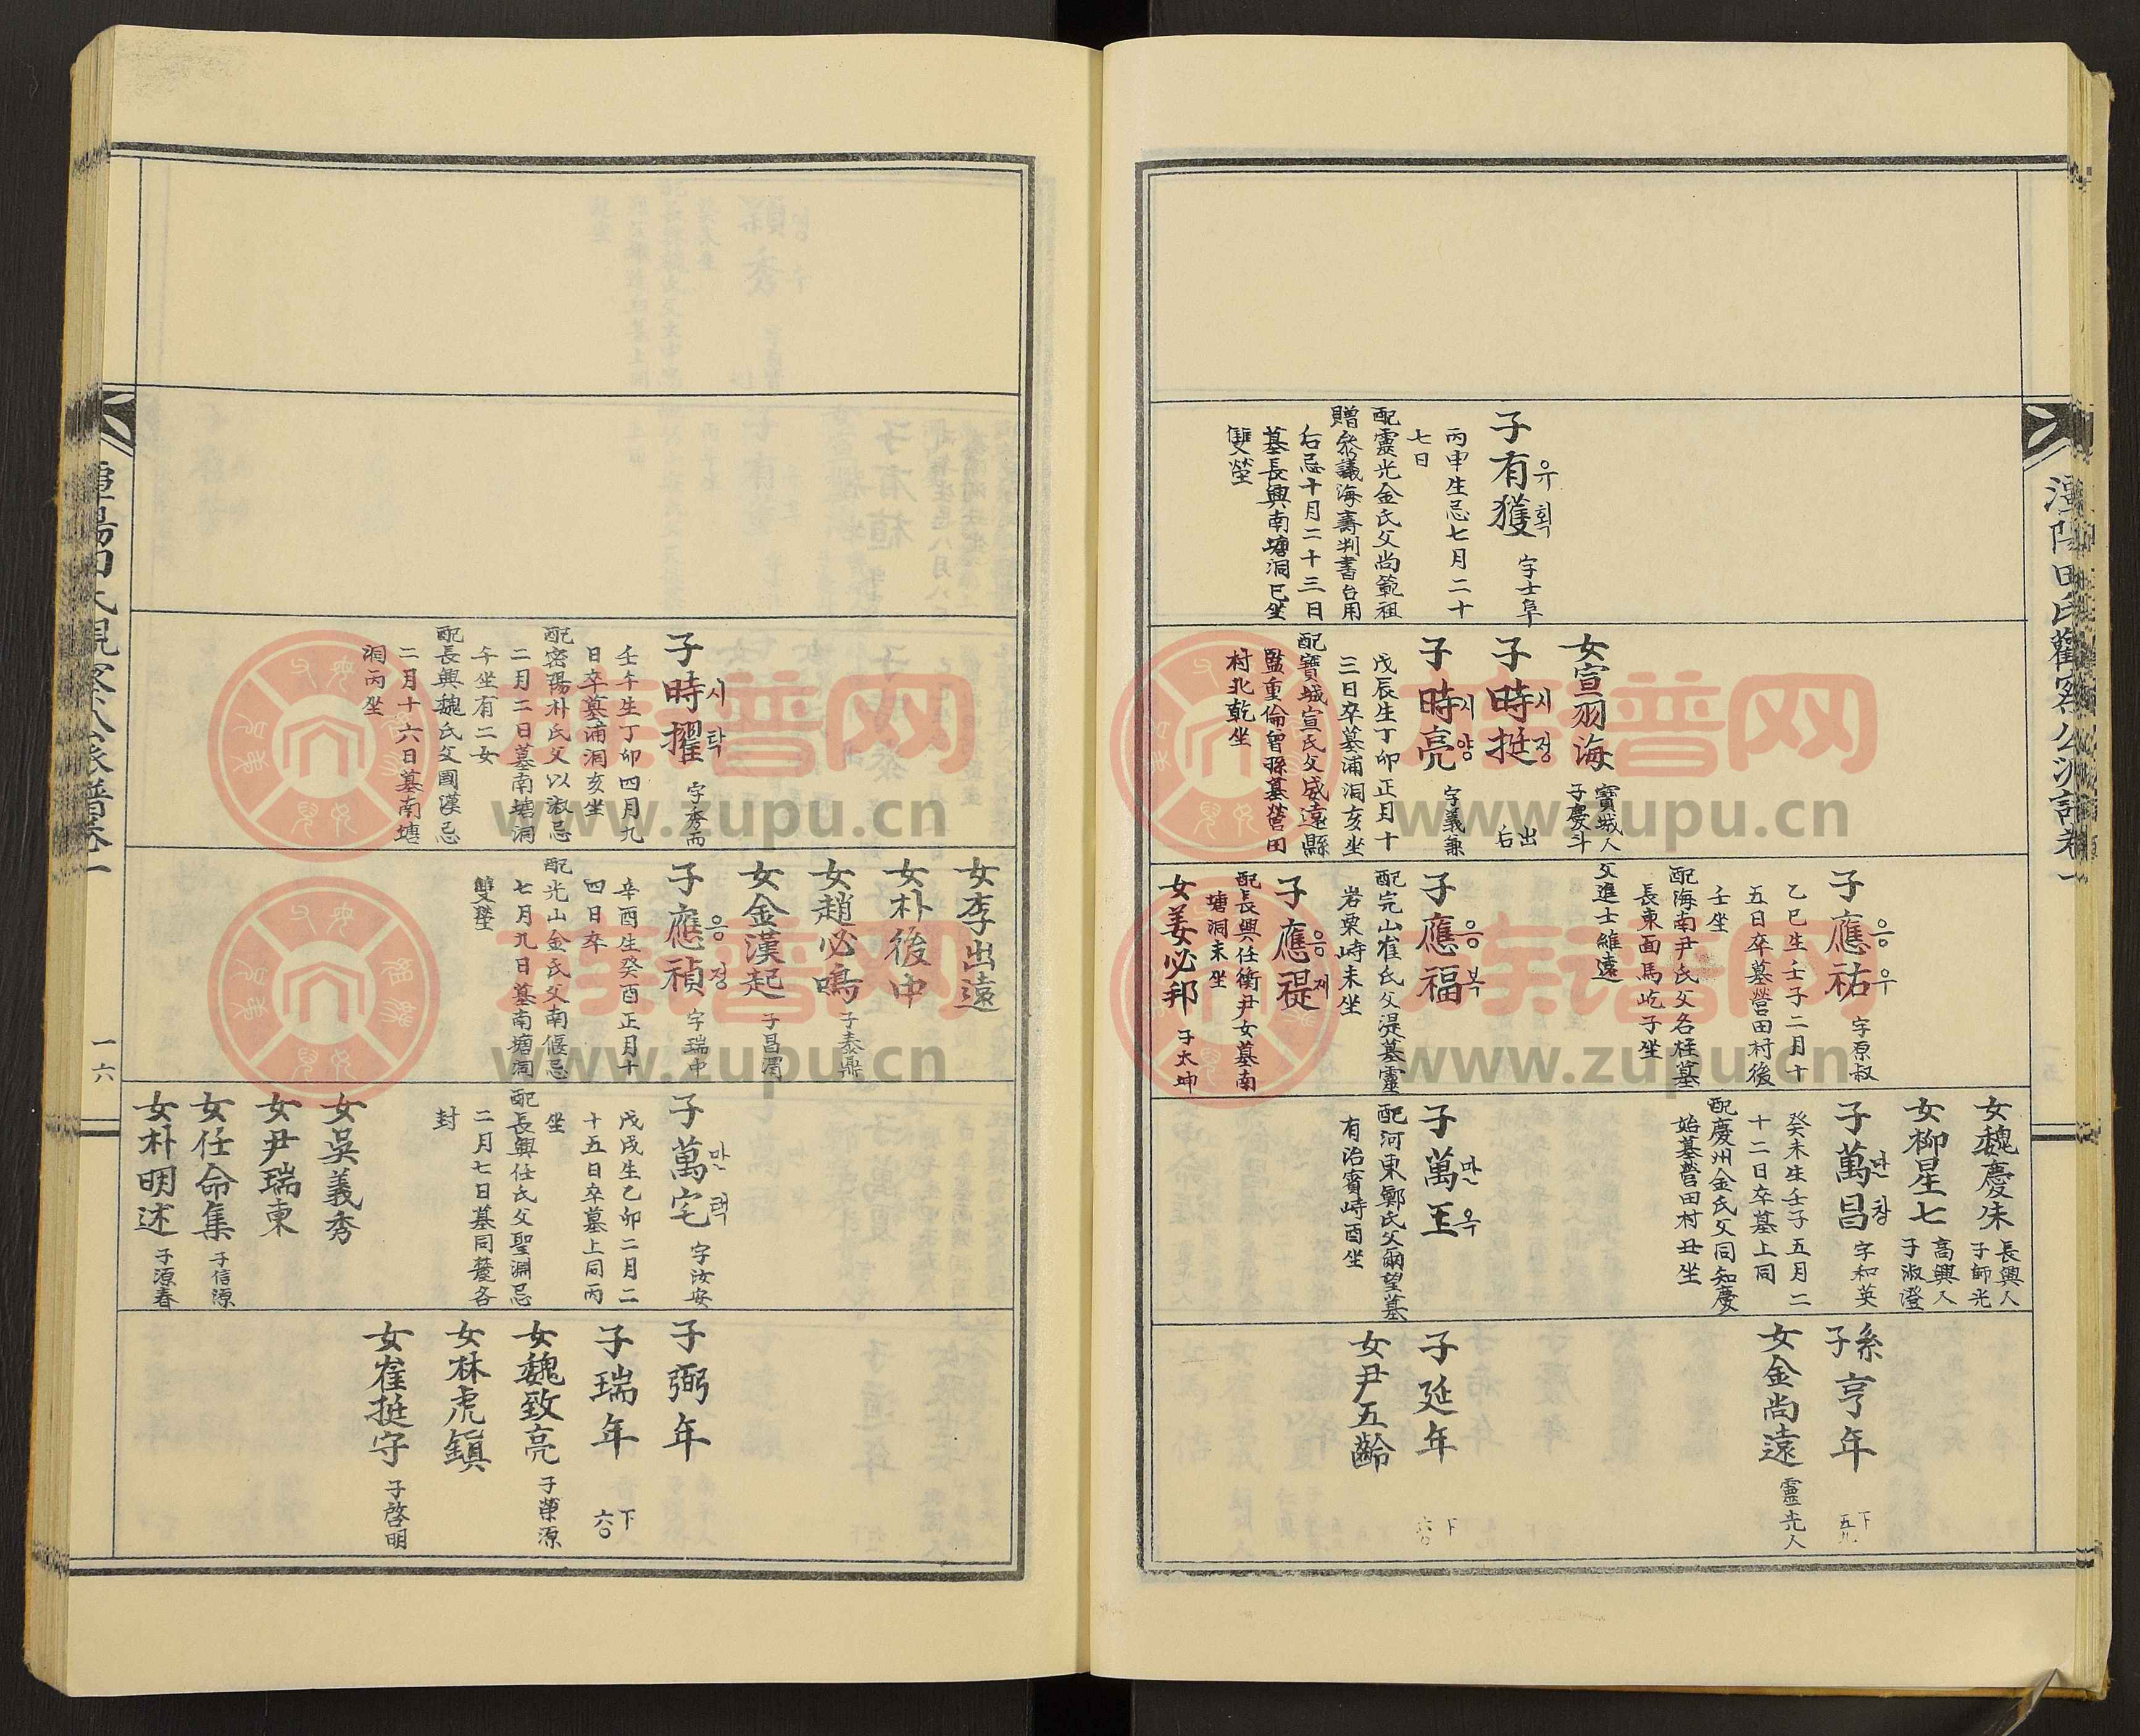 子有獲
유획
字士阜
丙申生忌七月二十
七日
配靈光金氏父尚範祖
贈參議海壽判書台用
后忌十月二十三日
墓長興南塘洞巳坐
雙塋
女宣羽海
寶城人
子慶斗
父進士維遠
子時挺
시정
出
右
子時亮
시양
字義兼
戊辰生丁卯正月十
三日卒墓浦洞亥坐
配寶城宣氏父威遠縣
監重倫曾孫墓營田
村北乾坐
子應祐
응우
字原叔
乙巳生壬子二月十
五日卒墓營田村後
壬坐
配海南尹氏父各柱墓
長東面馬屹子坐
子應福
응복
配完山崔氏父湜墓靈
岩栗峙未坐
子應禔
응제
配長興任衡尹女墓南
塘洞未坐
女姜必邦
子太坤
女魏慶朱
長興人
子師光
女柳星七
高興人
子淑澄
子萬昌
만창
字和英
癸未生壬子五月二
十二日卒墓上同
配慶州金氏父同知慶
始墓營田村丑坐
子萬玉
만옥
配河東鄭氏父爾望墓
有治賓峙酉坐
系
子亨年
下
五九
女金尚遠
靈光人
子延年
下
六〇
女尹五齡
子時擢
시탁
字秀而
壬午生丁卯四月九
日卒墓浦洞亥坐
配密陽朴氏父以淑忌
二月二日墓南塘洞
午坐有二女
配長興魏氏父國漢忌
二月十六日墓南塘
洞丙坐
女李出遠
女朴後中
女趙必鳴
子泰鼎
女金漢起
子昌渭
子應禎
응정
字瑞中
辛酉生癸酉正月十
四日卒
配光山金氏父南偃忌
七月九日墓南塘洞
雙塋
子萬宅
만택
字汝安
戊戌生乙卯二月二
十五日卒墓上同丙
坐
配長興任氏父聖淵忌
二月七日墓同麓各
封
女吳義秀
女尹瑞東
女任命集
子信源
女朴明述
子源春
子弼年
子瑞年
下
六〇
女魏致亮
子榮源
女林虎鎭
女崔挺守
子啓明
潭陽田氏觀察公派譜卷一
一六
族谱网
www.zupu.cn
族谱网
www.zupu.cn
族谱网
www.zupu.cn
族谱网
www.zupu.cn